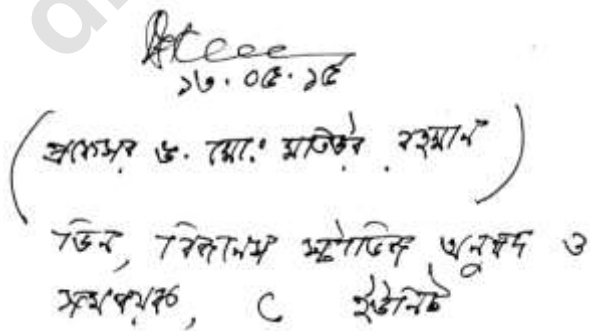 ১৩.০৫.১৫
(প্রফেসর ড. মো: মতিউর রহমান)
ডিন, বিজনেস স্টাডিজ অনুষদ ও
সমন্বয়ক, C ইউনিট